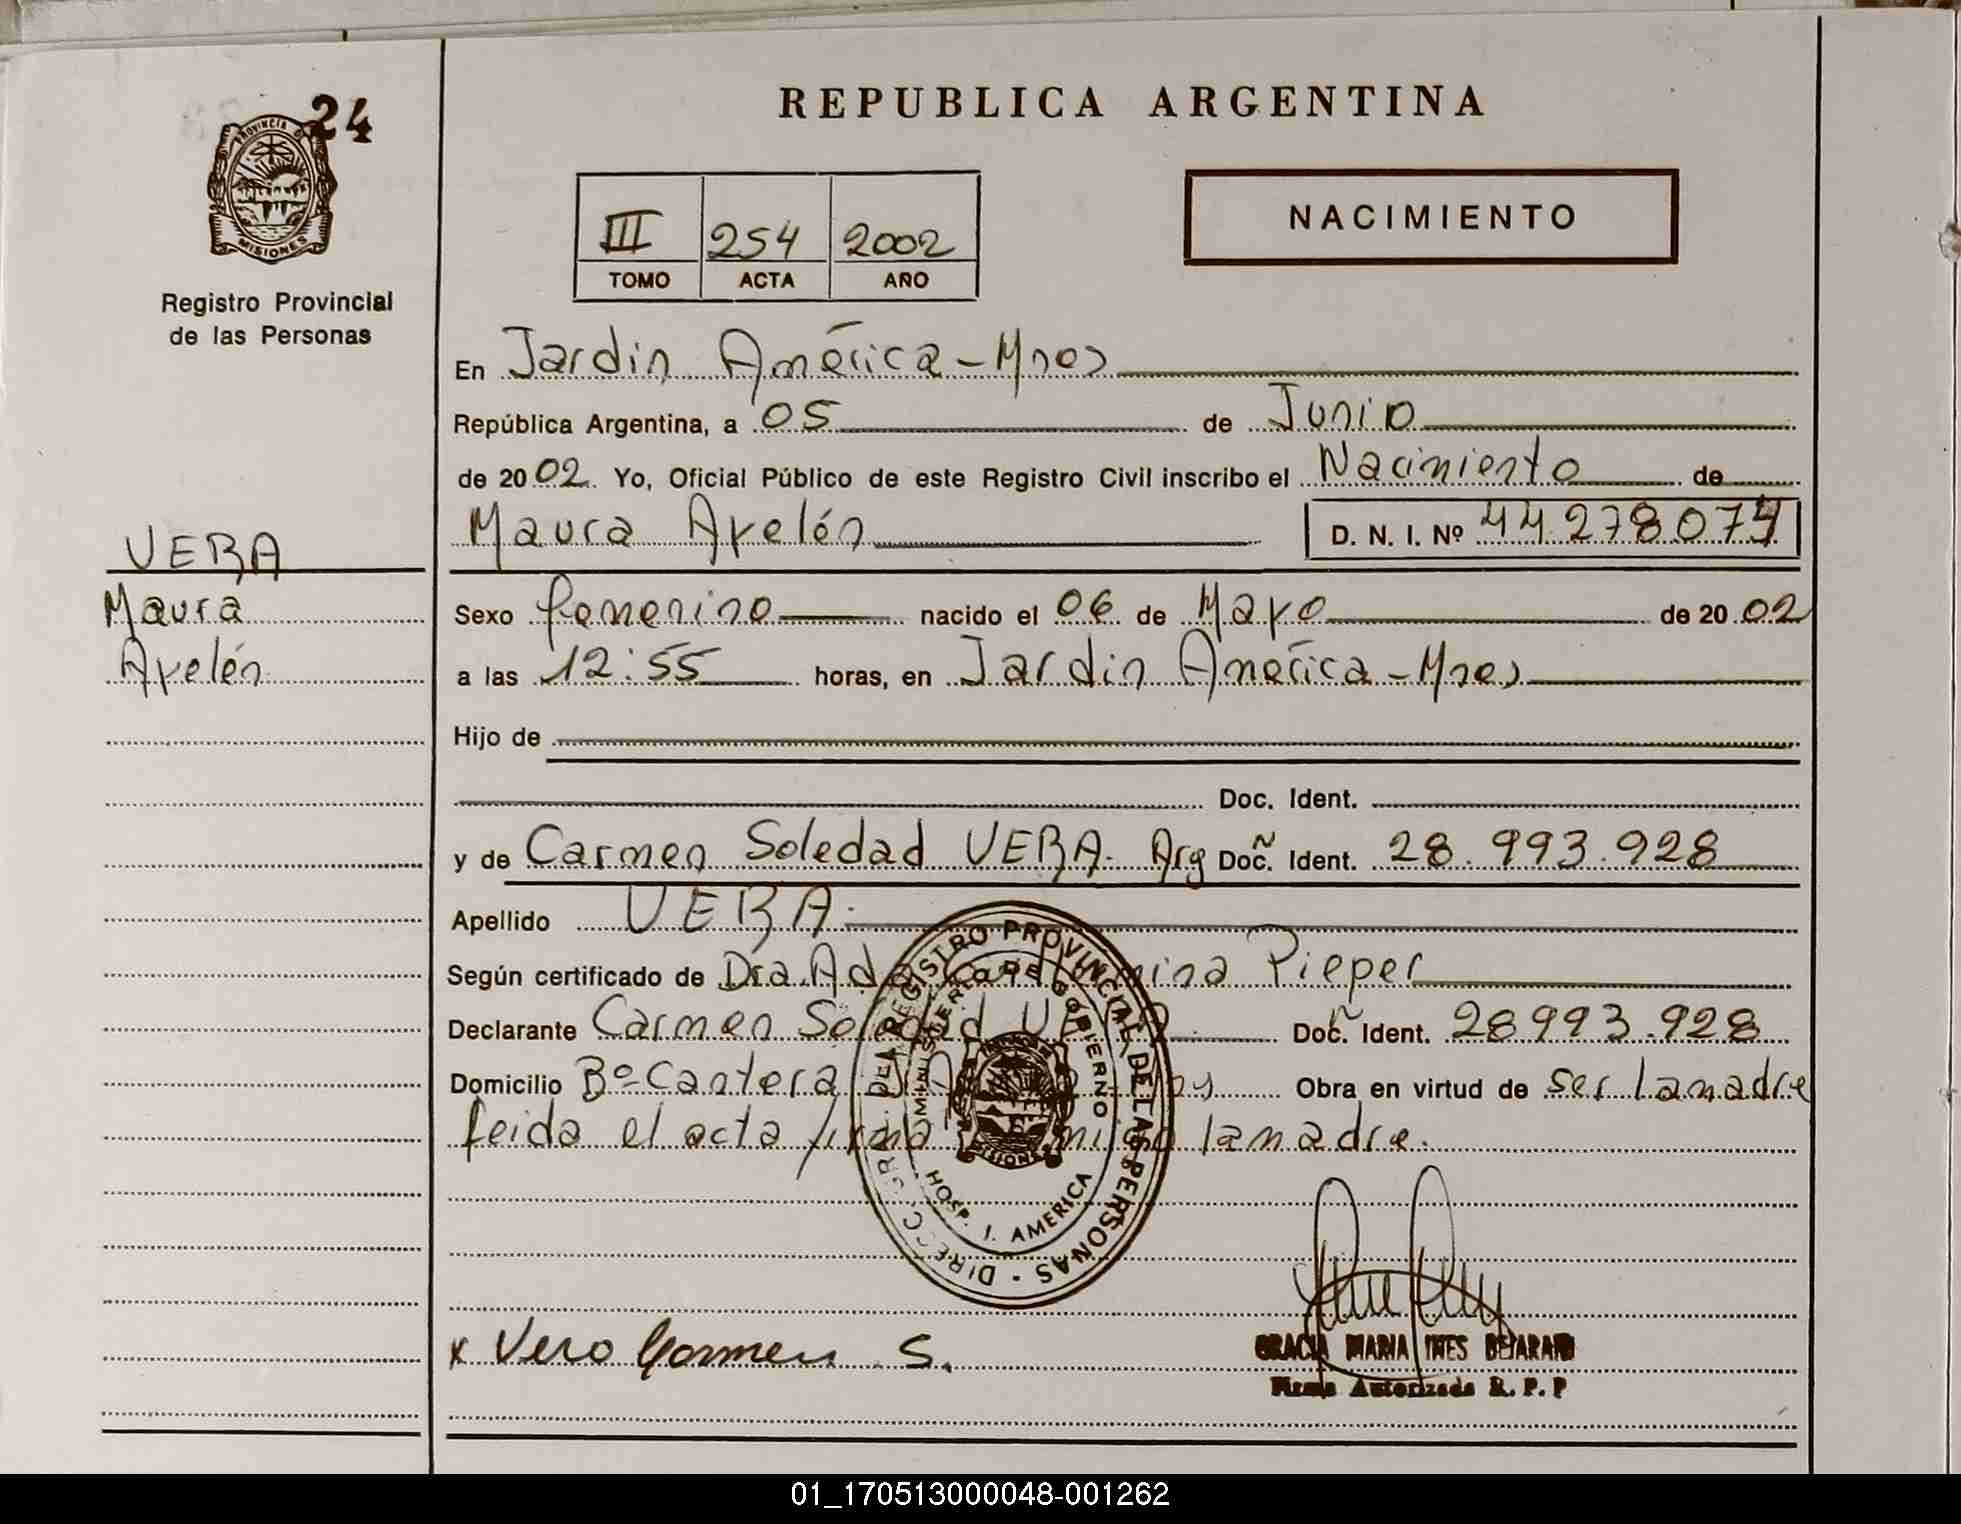 24
PROVINCIA D
MISIONES
Registro Provincial
de las Personas
REPUBLICA ARGENTINA
III 254 2002
TOMO ACTA AÑO
NACIMIENTO
En Jardin América - Mnes
República Argentina, a 05 de Junio
de 2002. Yo, Oficial Público de este Registro Civil inscribo el Nacimiento de
Maura Ayelén D. N. I. Nº 44278074
VERA
Maura
Ayelén
Sexo femenino nacido el 06 de Mayo de 2002
a las 12:55 horas, en Jardin América - Mnes
Hijo de
Doc. Ident.
y de Carmen Soledad VERA. Arg Doc. Ident. 28.993.928
Apellido VERA.
Según certificado de Dra. Pieper
Declarante Carmen Soledad VERA Doc. Ident. 28993.928
Domicilio Bº Cantera Obra en virtud de ser la madre
leida el acta firma conmigo la madre.
DIRECC. GRAL. DE REGISTRO PROVINCIAL DE LAS PERSONAS
MINISTERIO DE GOBIERNO
MISIONES
HOSP. J. AMERICA
x Vera Carmen S.
GRACIA MARIA INES BEJARANO
Firma Autorizada R. P. P
01_170513000048-001262